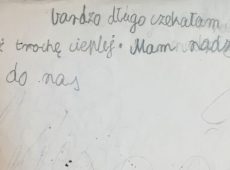 bardzo długo czekałam
trochę cieplej. Mam
do nas